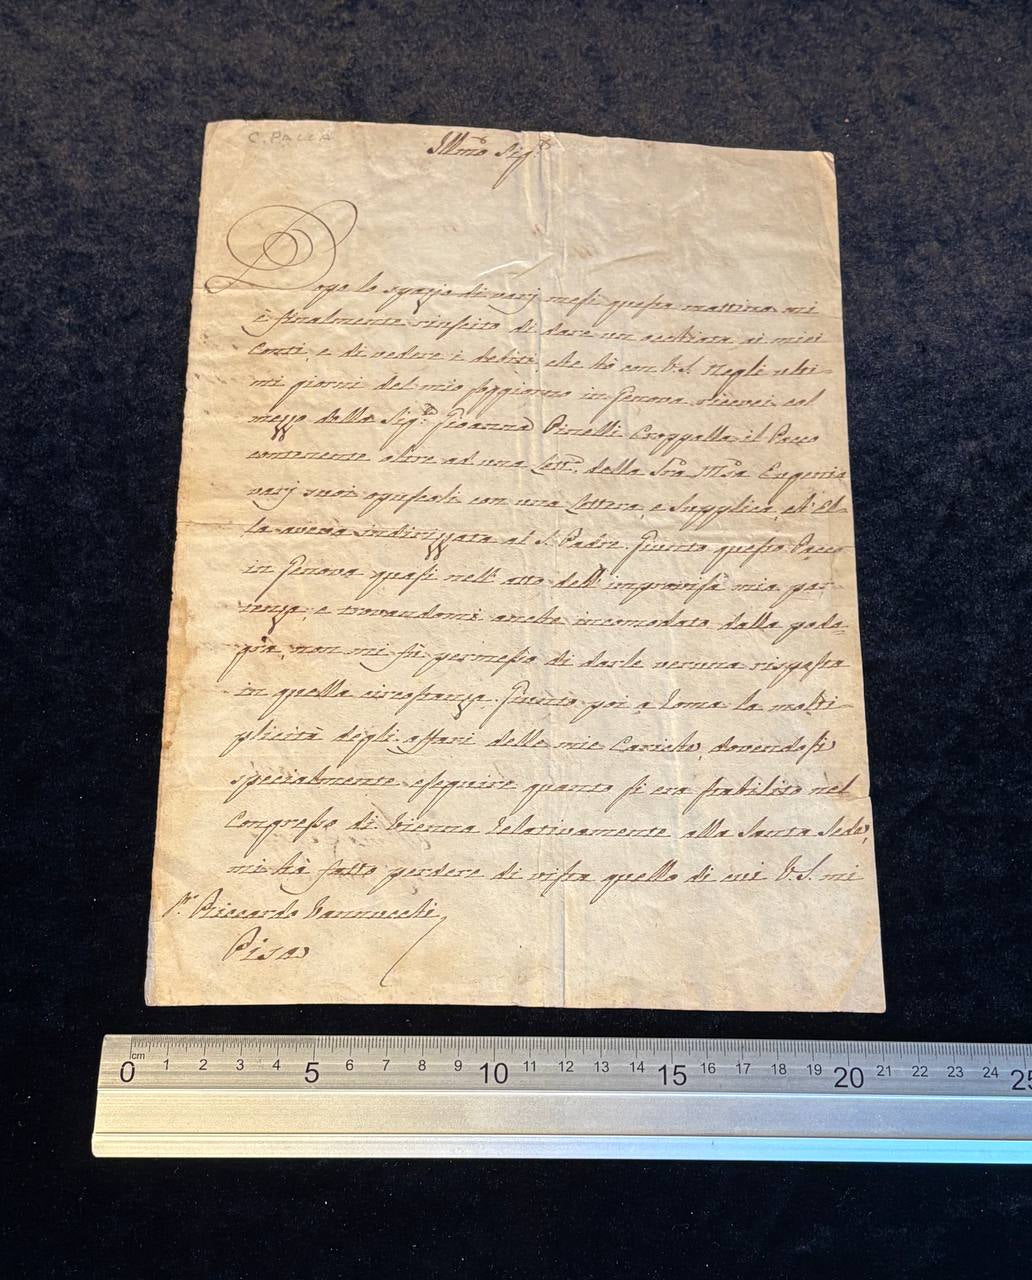 C. PALLA
Illmo Sigr
Dopo lo spazio di varj mesi questa mattina mi
è finalmente riuscito di dare un occhiata ai miei
Conti, e di vedere i debiti, che hò con V.S. Negli ulti-
mi giorni del mio soggiorno in Genova ricevei col
mezzo della Sigra Gioanna Pinelli Croppalla il Pacco
contenente oltre ad una Letta della Sra Msa Eugenia
varj suoi opuscoli con una Lettera, e Supplica, ch'El-
la aveva indirizzata al S. Padre. Giunto questo Pacco
in Genova quasi nell'atto dell'improvisa mia par-
tenza, e trovandomi anche incomodato dalla poda-
gra, non mi fù permesso di darle veruna risposta
in quella circostanza. Giunto poi a Roma la molti-
plicità degli affari delle mie Cariche, dovendosi
specialmente eseguire quanto si era stabilito nel
Congresso di Vienna relativamente alla Santa Sede,
mi hà fatto perdere di vista quello di cui V.S. mi
Sr Riccardo Vannucchi
Pisa
0 cm 1 2 3 4 5 6 7 8 9 10 11 12 13 14 15 16 17 18 19 20 21 22 23 24 25